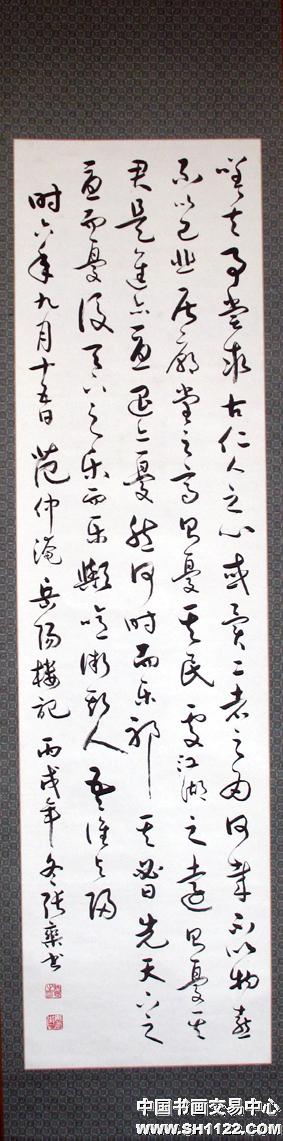 嗟夫予尝求古仁人之心或异二者之为何哉不以物喜
不以己悲居庙堂之高则憂其民处江湖之遠则憂其
君是進亦憂退亦憂然何时而乐耶其必曰先天下之
憂而憂後天下之乐而乐歟噫微斯人吾谁与归
时六年九月十五日范仲淹岳阳楼记丙戌年冬张书
中国书画交易中心
www.SH1122.com